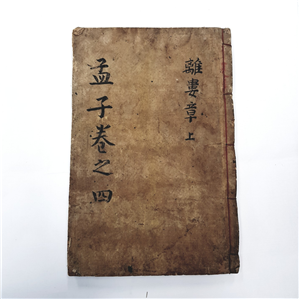 離婁章上
孟子卷之四